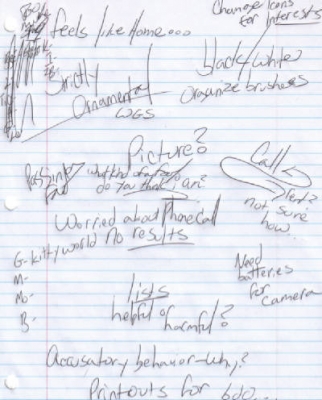 Change Icons
for Interests
feels like Home...
black/white
Strictly
Ornamental
WGS
organize brushes
Picture?
Call
Passing
Fad
what kind of a
do you think i am?
not sure
how
Worried about Phone Call
No results
G- kitty world
M-
Mo-
B-
Need
batteries
for
camera
lists
helpful or
harmful?
Accusatory behavior-why?
Printouts for